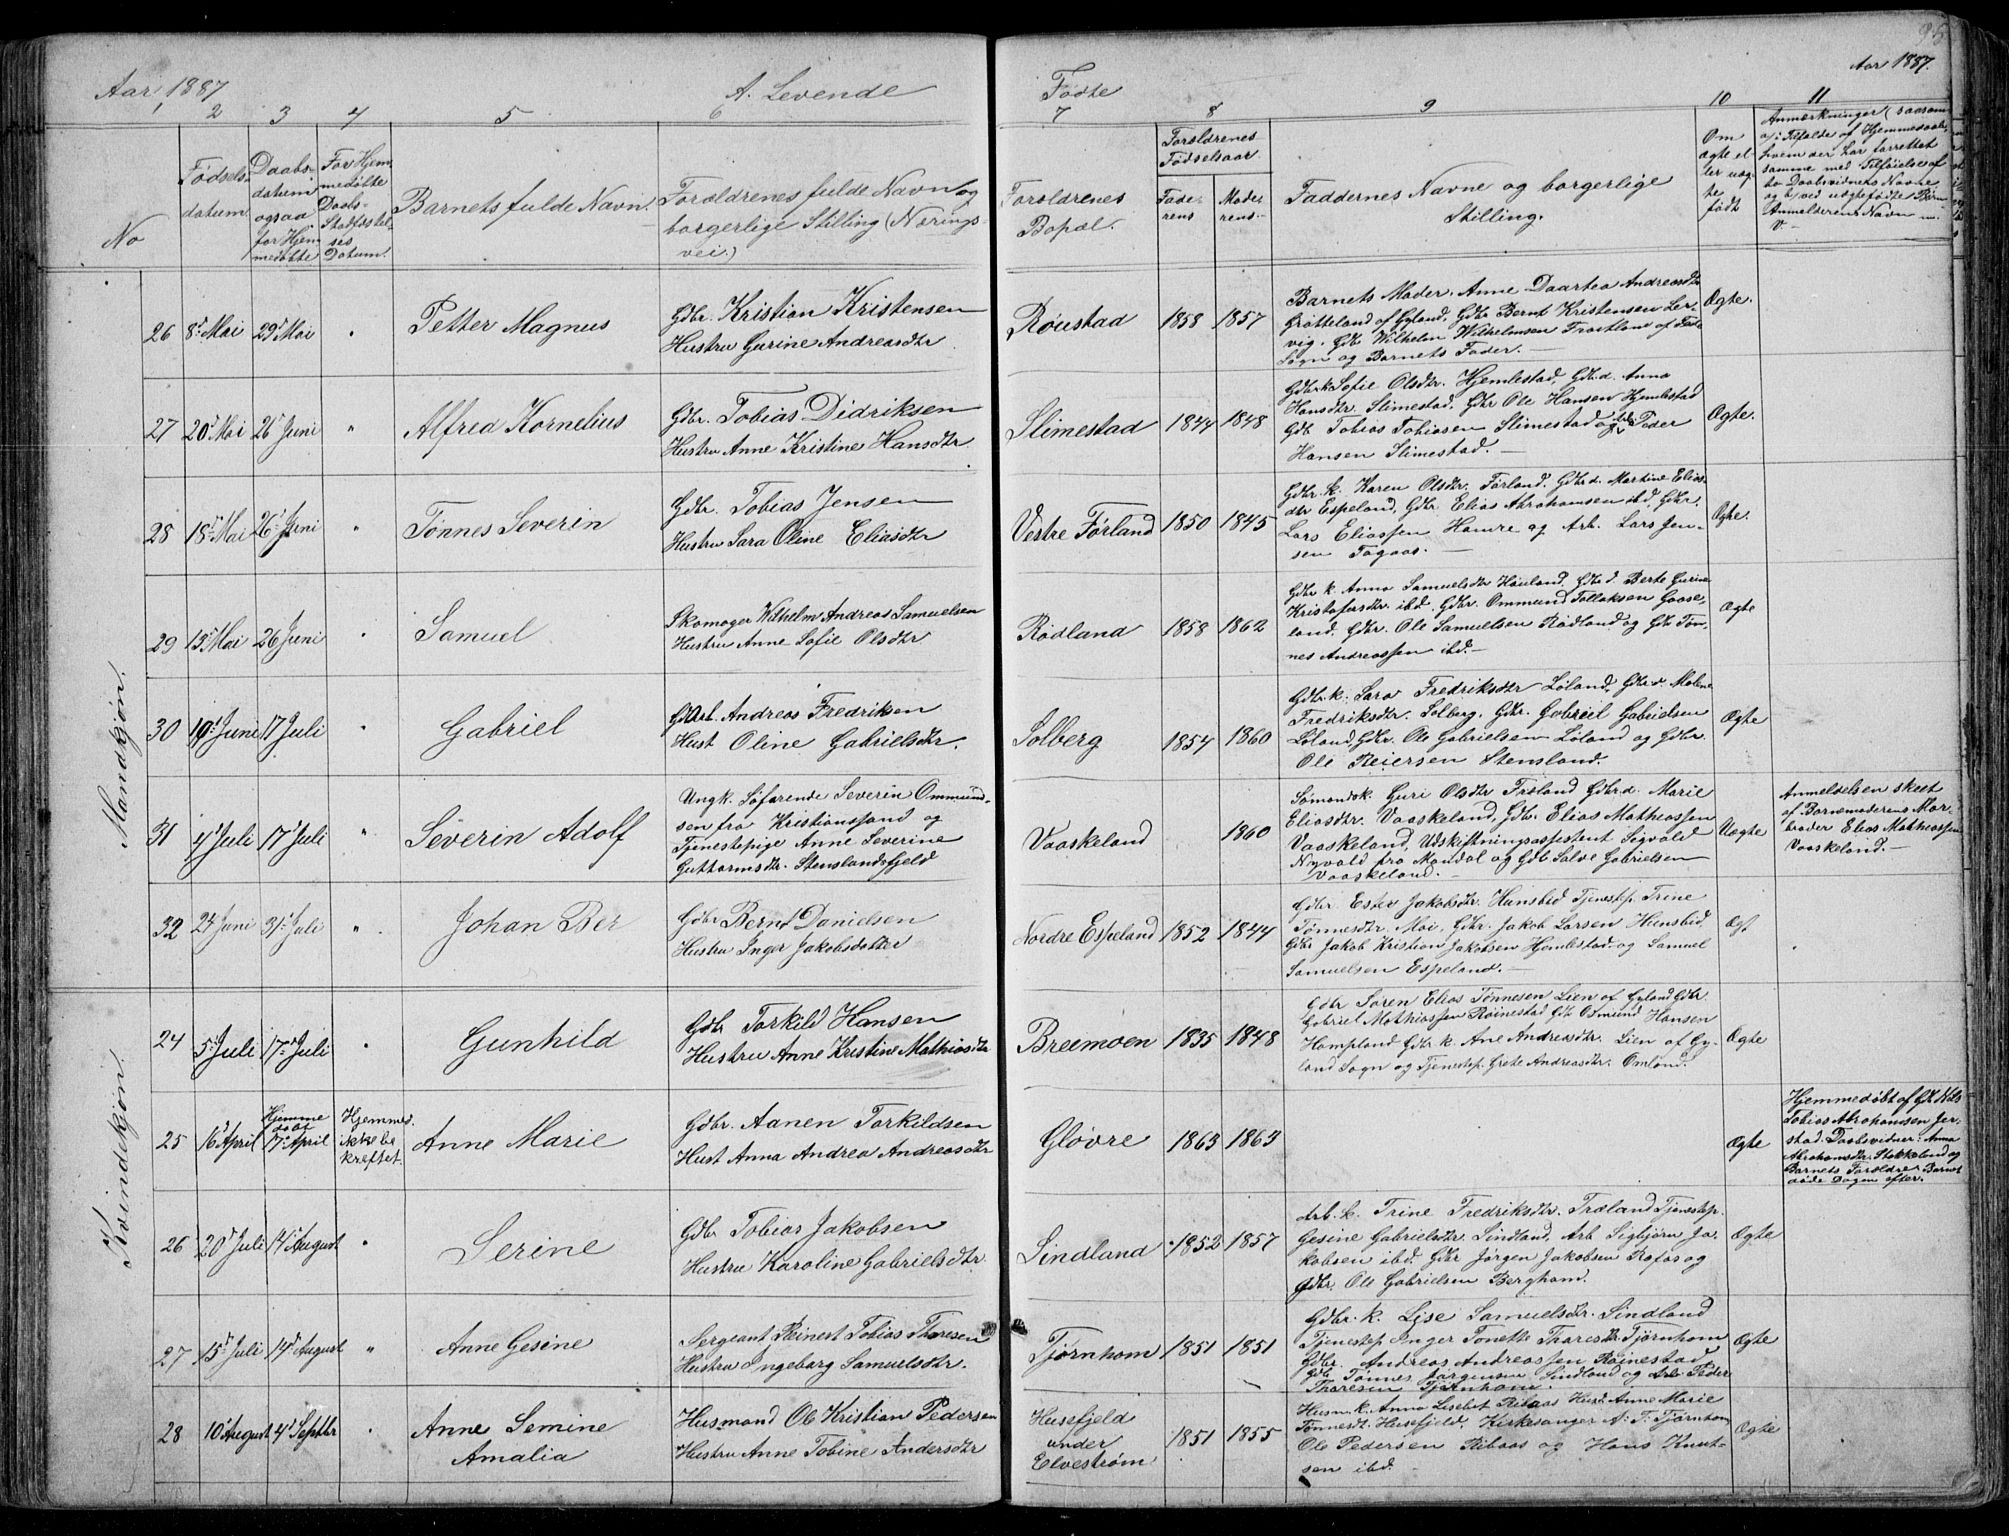 Aar 1887
A. Levende
Fødte
Aar 1887.
1 2 3 4 5 6 7 8 9 10 11
No
Fødsels-
datum
Daabs-
datum
ogsaa
for Hjem-
medøbte
For Hjem-
medøbte
Daabs-
Stadfæstel-
ses
Datum.
Barnets fulde Navn.
Forældrenes fulde Navn og
borgerlige Stilling (Nærings-
vei.)
Forældrenes
Bopæl.
Forældrenes
Fødselsaar
Fade-
rens
Mode-
rens
Faddernes Navne og borgerlige
Stilling.
Om
ægte el-
ler uæg-
te
født
Anmærkninger (saasom
a, i Tilfælde af Hjemmedaab,
hvem der har forrettet
samme med Tilføielse af
to Daabsvidners Navne
og b, ved uægtefødte Børn
Anmelderens Navn m.
v.
Mandkjøn.
26 8de Mai 29de Mai " Petter Magnus
Gdbr. Kristian Kristensen
Hustru Gurine Andreasdtr
Røiestad 1858 1857
Barnets Moder, Anne Daartea Andreasdtr
Grøtteland af Gyland, Gdbr Bernt Kristensen Ler-
vig. Gdb Wilhelm Wilhelmsen Frøstland af Feda
Sogn og Barnets Fader.
Ægte.
27 20de Mai 26de Juni " Alfred Kornelius
Gdbr. Tobias Didriksen
Hustru Anne Kristine Hansdtr
Slimestad 1844 1848
Gdbr.k Sofie Olsdtr. Hjemlestad, Gdb.d. Anna
Hansdtr. Slimestad, Gdbr Ole Hansen Hjemlestad
Gdb Tobias Tobiasen Slimestad og Peder
Hansen Slimestad.
Ægte.
28 18de Mai 26de Juni " Tønnes Severin
Gdbr. Tobias Jensen
Hustru Sara Oline Eliasdtr
Vestre Førland 1850 1845
Gdbr. k. Karen Olsdtr. Førland. Gdbr d. Martine Elias-
dtr Espeland, Gdbr. Elias Abrahamsen ibd, Gdbr.
Lars Eliassen Hamre og Arb. Lars Jen-
sen Fogaas.
Ægte.
29 15de Mai 26 Juni " Samuel
Skomager Wilhelm Andreas Samuelsen
Hustru Anne Sofie Olsdtr
Rødland 1858 1862
Gdbr k Anna Samuelsdtr Høiland. Gdb d. Berte Gurine
Kristofersdtr. ibd. Gdbr. Ommund Tollaksen Gaase-
land. Gdbr. Ole Samuelsen Rødland og Gdb Tøn-
nes Andreassen ibd.
Ægte
30 19de Juni 17 Juli " Gabriel
Gd Arb. Andreas Fredriksen
Hust Oline Gabrielsdtr.
Solberg 1854 1860
Gdbr. k. Sara Fredriksdtr Løland, Gdbr d. Malene
Fredriksdtr. Solberg. Gdbr. Gabriel Gabrielsen
Løland, Gdbr. Ole Gabrielsen Løland og Gdbr.
Ole Reiersen Stensland.
Ægte
31 4de Juli 17de Juli " Severin Adolf
Ungk. Søfarende Severin Ommund-
sen fra Kristianssand og
Tjenestepige Anne Severine
Guttormsdtr. Stenslandsfjeld
Vaaskeland 1860
Sømands k. Guri Olsdtr Frøland Gdbr.d. Marie
Eliasdtr. Vaaskeland, Gdb. Elias Mathiassen
Vaaskeland, Udskiftningsassistent Sigvald
Nyvold fra Mandal og Gdb Salve Gabrielsen
Vaaskeland.
Uægte
Anmeldelsen skeet
af Barnemoderens Mor-
broder Elias Mathiassen
Vaaskeland.
32 24 Juni 31te Juli " Johan Ber
Gdbr Bernt Danielsen
Hustru Inger Jakobsdatter
Nordre Espeland 1852 1844
Gdbr. Ester Jakobsdtr. Hunsbid Tjenestep. Trine
Tønnesdtr. Moi, Gdbr. Jakob Larsen Hunsbid,
Gdbr Jakob Kristian Jakobsen Hjemlestad og Samuel
Samuelsen Espeland.
Ægt
Kvindekjøn.
24 5te Juli 17de Juli " Gunhild
Gdbr Torkild Hansen
Hustru Anne Kristine Mathiasdtr
Breemoen 1835 1848
Gdbr Søren Elias Tønnesen Lien af Gyland Gdbr.
Gabriel Mathiassen Røinestad Gdb Osmund Hansen
Hampland Gdbr k. Ane Andreasdtr. Lien af Gy-
land Sogn og Tjenestep. Grete Andreasdtr. Omland.
Ægte
25 16de April Hjemme
døbt
17de April
Hjemmed.
ikke be
kreftet Anne Marie
Gdbr. Aanen Torkildsen
Hust Anna Andrea Andreasdtr
Gløvre 1863 1863
Ægte
Hjemmedøbt af
Tobias Abrahamsen Jer-
stad. Daabsvidner: Anna
Abrahamsdtr. Stokkeland og
Barnets Forældre Barnet
døde Dagen efter.
26 20de Juli 14de August " Serine
Gdbr Tobias Jakobsen
Hustru Karoline Gabrielsdtr.
Sindland 1852 1857
Arb. k. Trine Fredriksdtr. Træland Tjenestep.
Gesine Gabrielsdtr. Sindland, Arb Sigbjørn Ja-
kobsen ibd. Gdbr Jørgen Jakobsen Røfos og
Gdbr. Ole Gabrielsen Bergham.
Ægte
27 15de Juli 14de August " Anne Gesine
Sergeant Reinert Tobias Thoresen
Hustru Ingeborg Samuelsdtr.
Tjørnhom 1851 1851
Gdbr. k. Lise Samuelsdtr. Sindland
Tjenestep Inger Tonette Thoresdtr Tjørnhom
Gdbr. Andreas Andreassen Røinestad
Gdb Tønnes Jørgensen Sindland og Arb Peder
Thoresen Tjørnhom.
Ægte
28 10de August 4de Septbr " Anne Semine
Amalia
Husmand Ole Kristian Pedersen
Hustru Anne Tobine Andersdtr
Husefjeld
under
Elvestrøm 1851 1855
Husm. k. Anna Lisebet Ribaas Husd. Anne Marie
Tønnesdtr. Husefjeld, Kirkesanger A. T. Tjørnhom
Ole Pedersen Ribaas og Hans Knut-
sen ibd.
Ægte